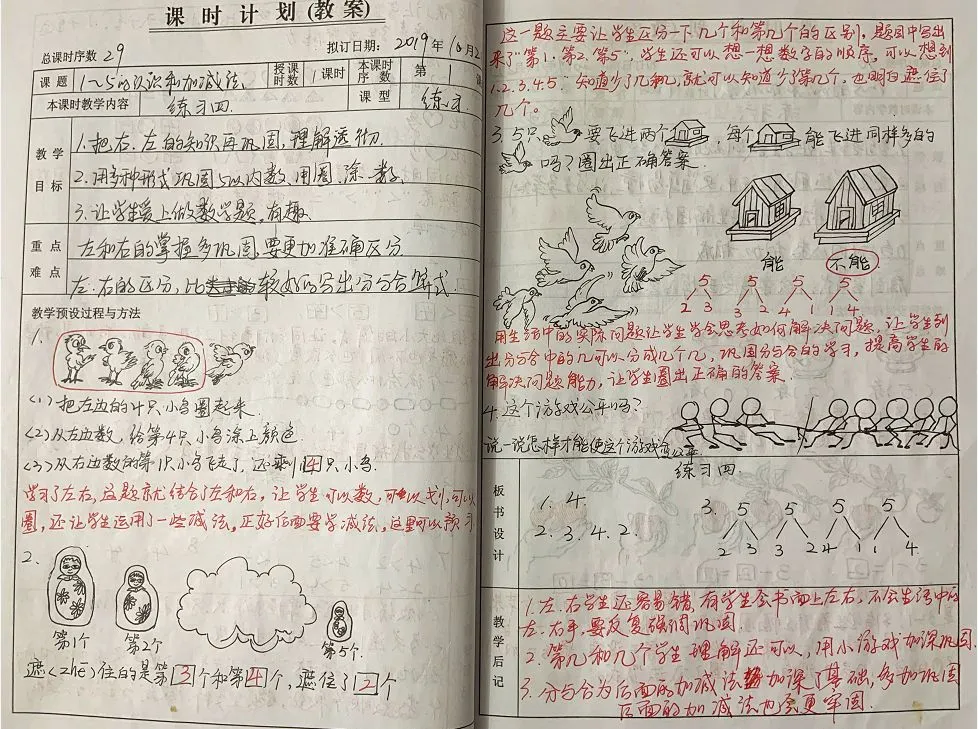 课时计划(教案)
总课时序数 29 拟订日期: 2019年10月2
课题 1~5的认识和加减法 授课时数 1课时 本课时序数 第1课
本课时教学内容 练习四. 课型 练习.
教学目标
1.把右、左的知识再巩固,理解透彻.
2.用多种形式巩固5以内数,用圈、涂、数.
3.让学生爱上做数学题,有趣.
重点 左和右的掌握多巩固,要更加准确区分
难点 左、右的区分,比较好的写出分与合算式.
教学预设过程与方法
1.
(1)把左边的4只小鸟圈起来.
(2)从左边数,给第4只小鸟涂上颜色
(3)从右边数的第1只小鸟飞走了,还剩4只小鸟.
学习了左右,这题就结合了左和右,让学生可以数,可以划,可以
圈,还让学生运用了一些减法,正好后面要学减法,这里可以预习
2.
第1个 第2个 第5个.
遮<zhē>住的是第3个和第4个,遮住了2个
这一题主要让学生区分一下几个和第几个的区别,题目中写出
来了"第1、第2、第5",学生还可以想一想数字的顺序,可以想到
1.2.3.4.5.知道少了几和几,就可以知道少了第几个,也明白遮住了
几个。
3.5只 要飞进两个 ,每个 能飞进同样多的
吗?圈出正确答案.
能 不能
5 5 5 5
2 3 3 2 4 1 1 4
用生活中的实际问题让学生学会思考如何解决问题,让学生列
出分与合中的几可以分成几个几,巩固分与合的学习,提高学生的
解决问题能力,让学生圈出正确的答案.
4.这个游戏公平吗?
说一说怎样才能使这个游戏公平
板书设计
练习四
1. 4.
2. 3. 4. 2.
3. 5 5 5 5
2 3 3 2 4 1 1 4.
教学后记
1.左、右学生还容易错,有学生会书面上左右,不会生活中的
左、右手,要反复强调巩固.
2.第几和几个学生理解还可以,用小游戏加深巩固.
3.分与合为后面的加减法加课了基础,多加巩固
后面的加减法也会更牢固.